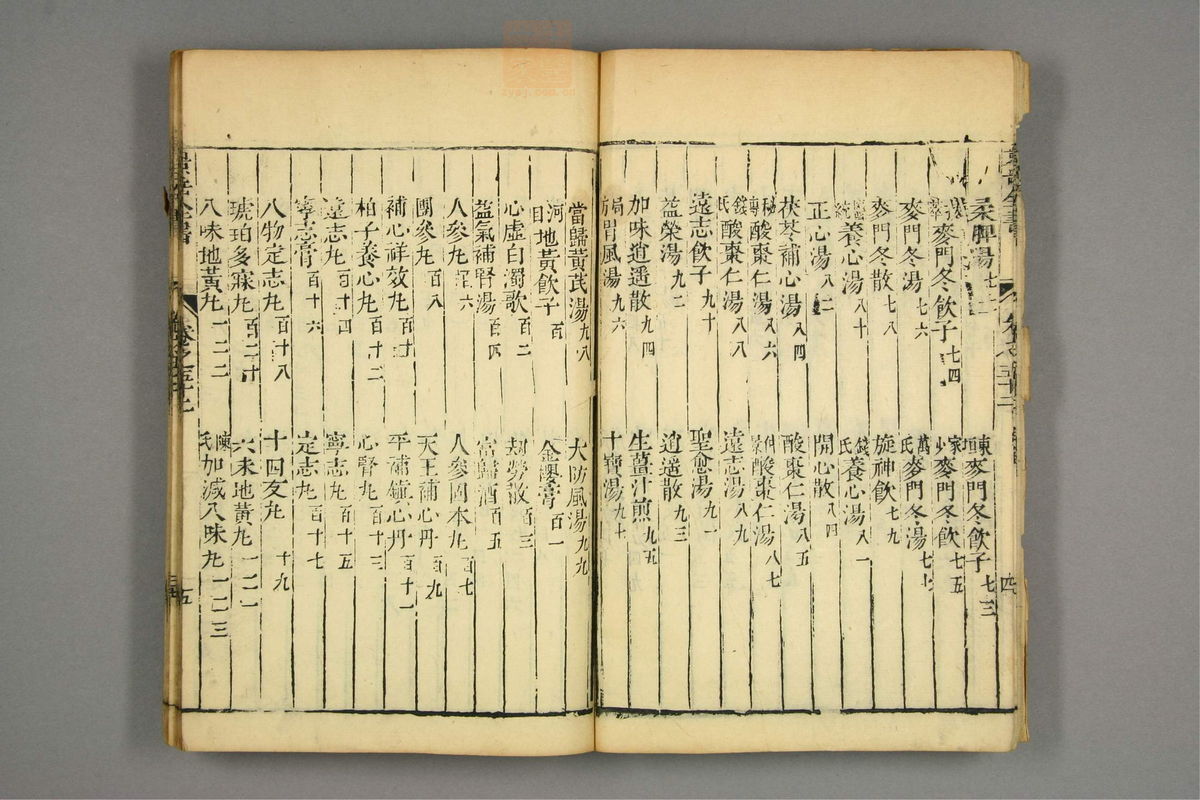 柔脾湯七二 東垣麥門冬飲子七三
麥門冬飲子七四 家少麥門冬飲七五
麥門冬湯七六 萬氏麥門冬湯七七
麥門冬散七八 旋神飲七九
統養心湯八十 錢氏養心湯八一
正心湯八二 開心散八四
茯苓補心湯八四 酸棗仁湯八五
酸棗仁湯八六 酸棗仁湯八七
錢氏酸棗仁湯八八 遠志湯八九
遠志飲子九十 聖愈湯九一
益榮湯九二 逍遥散九三
加味逍遥散九四 生薑汁煎九五
局方胃風湯九六 十寶湯九七
當歸黃芪湯九八 大防風湯九九
河間地黃飲子百 金櫻膏百一
心虛白濁歌百二 劫勞散百三
益氣補腎湯百四 當歸酒百五
人參丸百六 人參固本丸百七
團參丸百八 天王補心丹百九
補心神效丸百十 平補鎮心丹百十一
柏子養心丸百十二 心腎丸百十三
遠志丸百十四 寧志丸百十五
寧志膏百十六 定志丸百十七
八物定志丸百十八 十四友丸十九
琥珀多寐丸百二十 六味地黃丸一二一
八味地黃丸一二二 陳氏加減八味丸一二三
景岳全書 卷之五十三
四
五